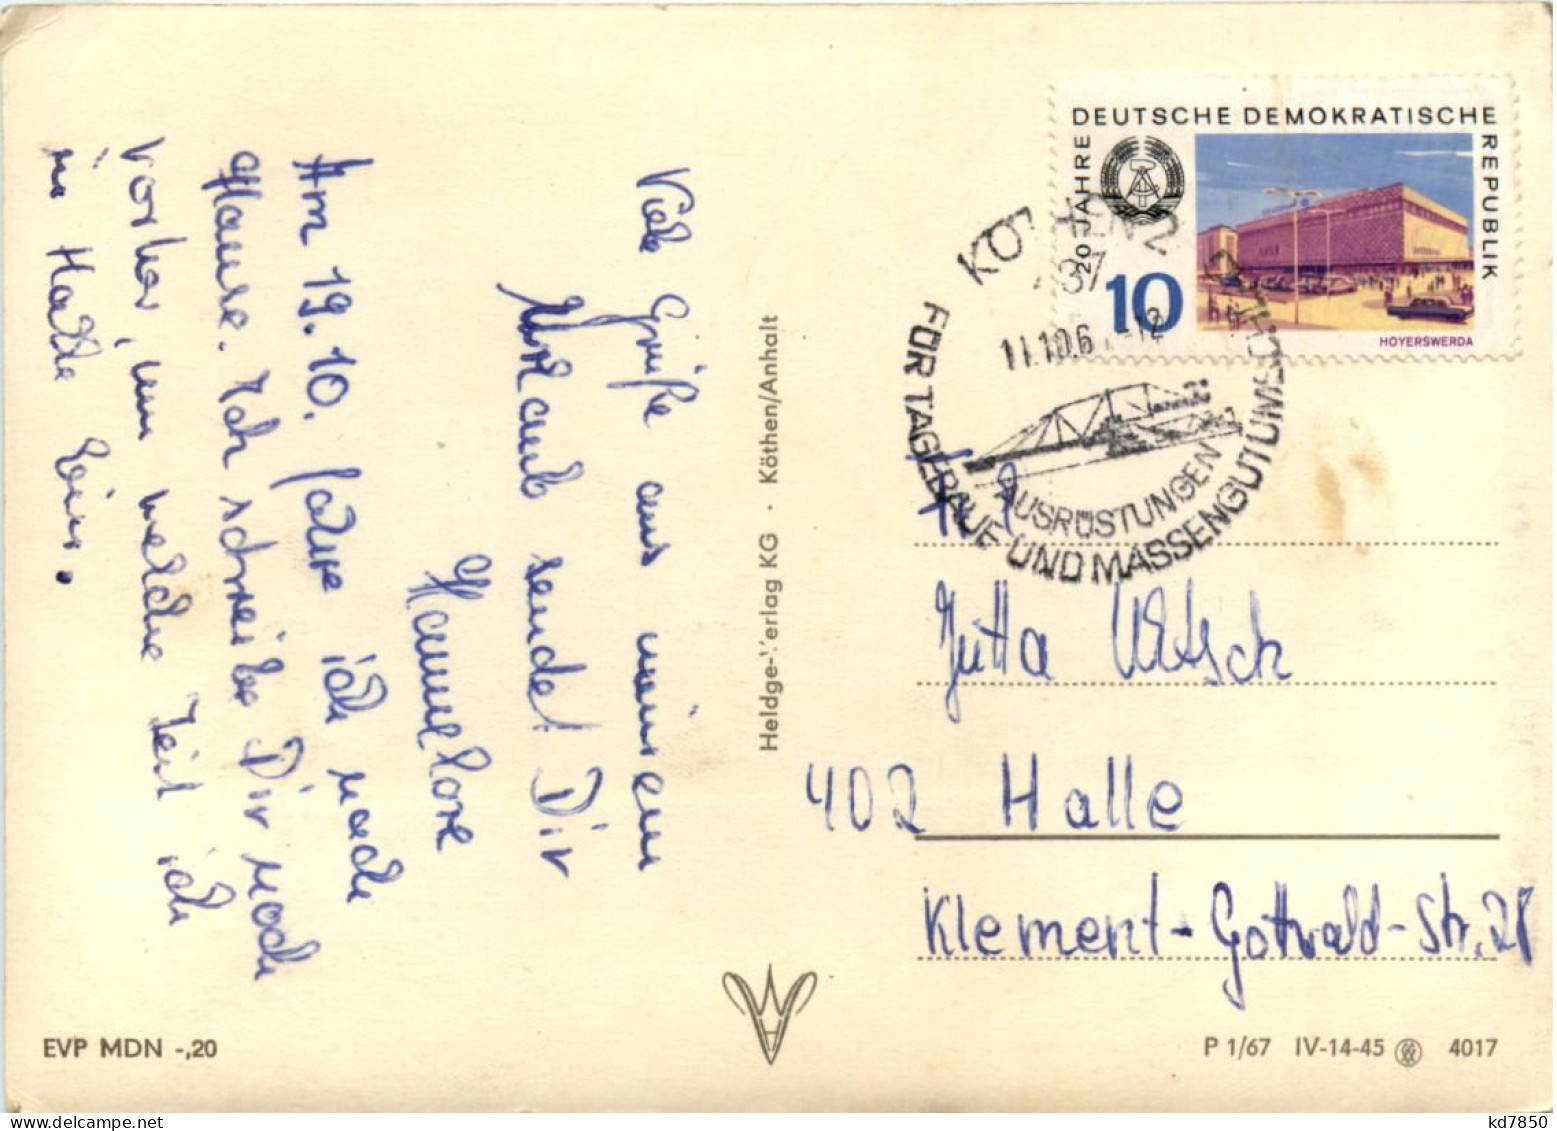 Viele Grüße aus meinem
Urlaub sendet Dir
Hannelore
Am 19.10. fahre ich nach
Hause. Ich schreibe Dir noch
vorher, um welche Zeit ich
in Halle bin.
Heldge-Verlag KG · Köthen/Anhalt
DEUTSCHE DEMOKRATISCHE
REPUBLIK
20 JAHRE
10
HOYERSWERDA
KÖTHEN 2
437
11.10.6 -12
FÜR TAGEBAUE UND MASSENGUTUMSCHLAG
AUSRÜSTUNGEN
Jutta
402 Halle
Klement-Gottwald-Str. 28
EVP MDN -,20
P 1/67 IV-14-45 4017
kd7850